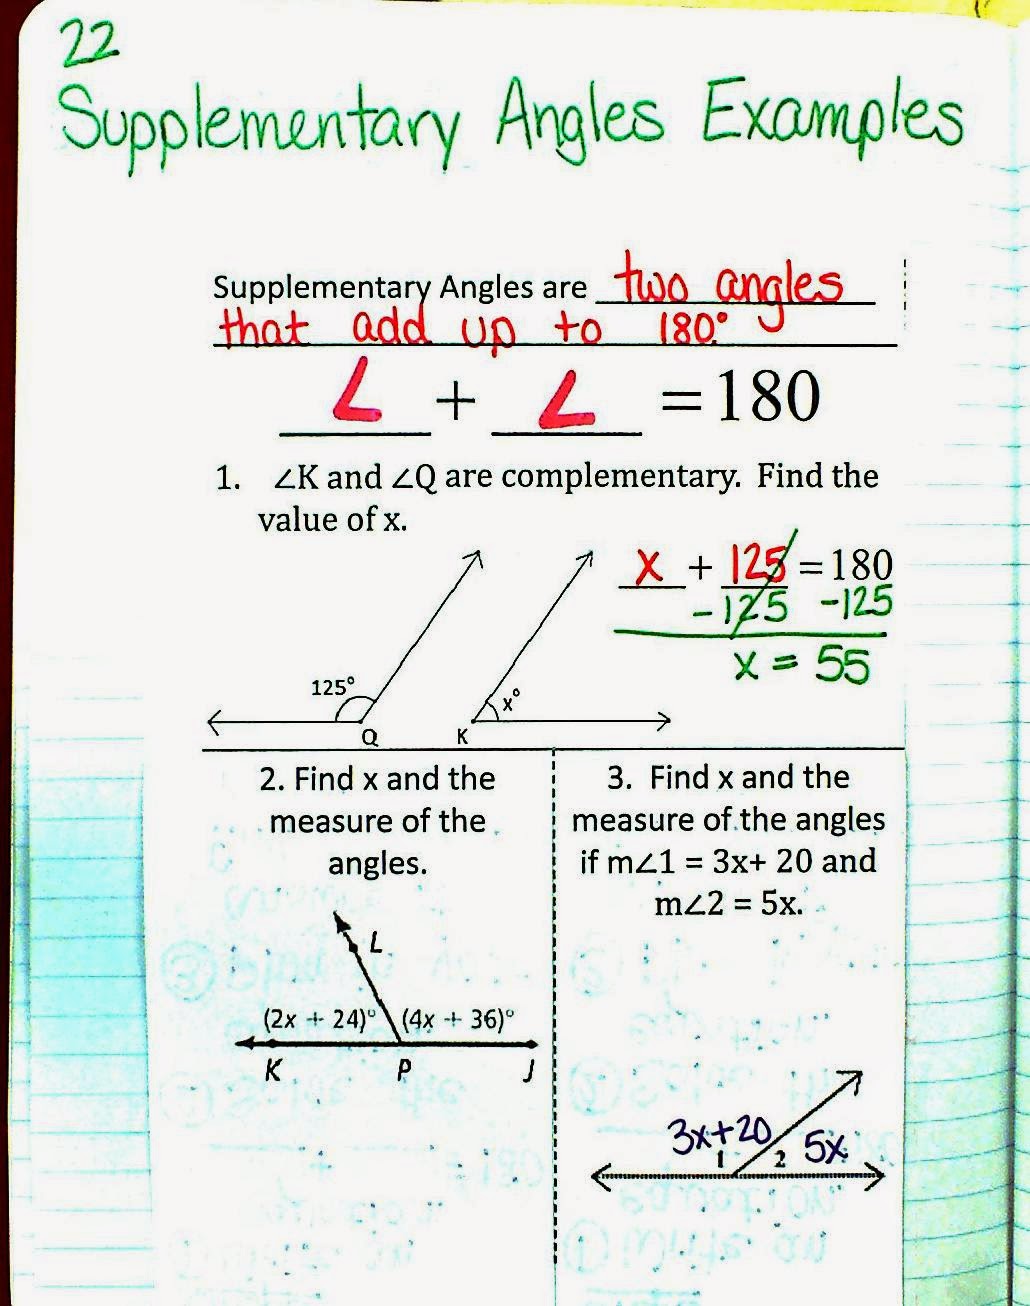 22
Supplementary Angles Examples
Supplementary Angles are two angles
that add up to 180°
∠ + ∠ = 180
1. ∠K and ∠Q are complementary. Find the
value of x.
x + 125 = 180
-125 -125
x = 55
125°
x°
Q
K
2. Find x and the
measure of the
angles.
L
(2x + 24)° (4x + 36)°
K P J
3. Find x and the
measure of the angles
if m∠1 = 3x+ 20 and
m∠2 = 5x.
3x+20 5x
1 2